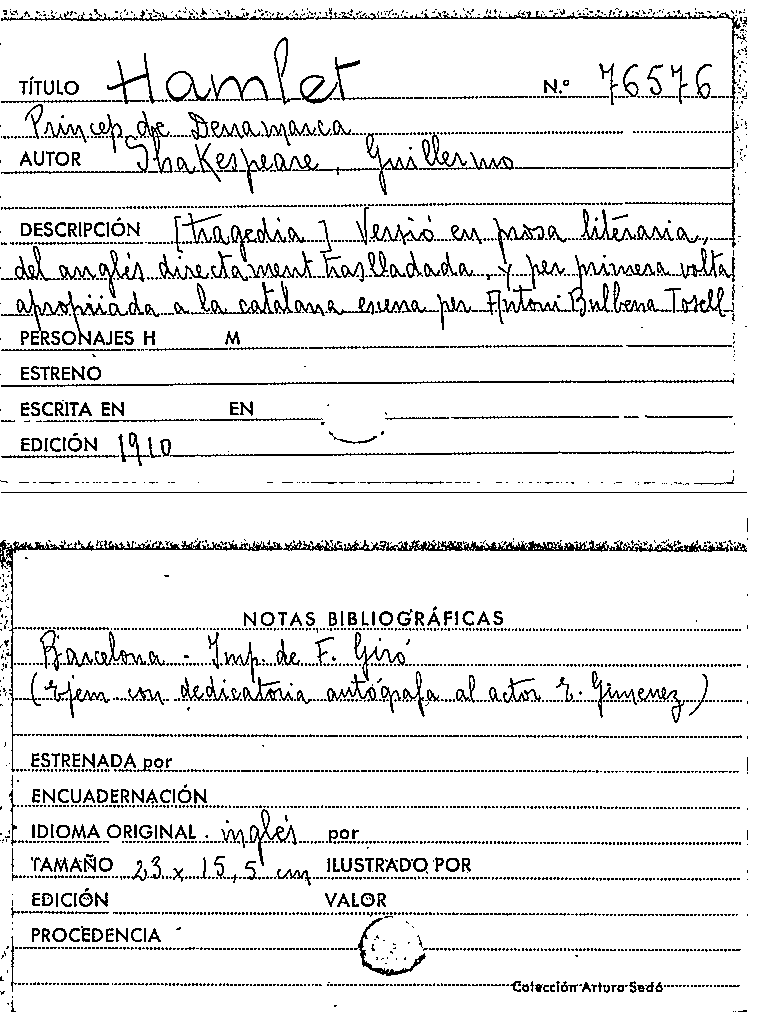 TÍTULO Hamlet N.º 76576
Princep de Denamarca
AUTOR Shakespeare, Guillermo
DESCRIPCIÓN [tragedia] Versió en prosa literaria,
del anglés directament traslladada, y per primera volta
apropiada a la catalana escena per Antoni Bulbena Tosell
PERSONAJES H M
ESTRENO
ESCRITA EN EN
EDICIÓN 1910
NOTAS BIBLIOGRÁFICAS
Barcelona - Imp. de F. Giró
(Ejem con dedicatoria autógrafa al actor E. Gimenez)
ESTRENADA por
ENCUADERNACIÓN
IDIOMA ORIGINAL. inglés por
TAMAÑO 23 x 15,5 cm ILUSTRADO POR
EDICIÓN VALOR
PROCEDENCIA
Colección Arturo Sedó